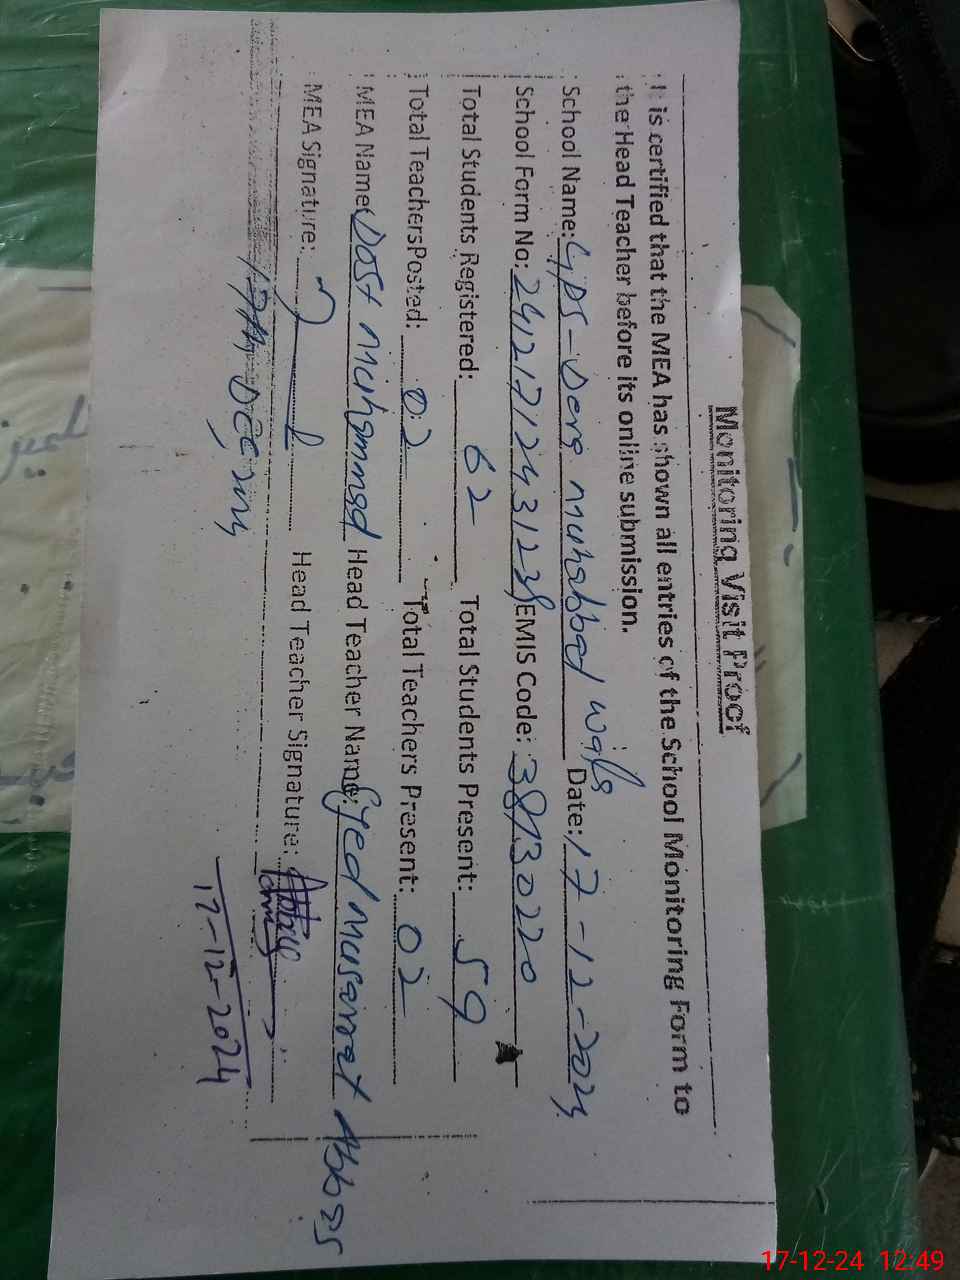 Monitoring Visit Proof
It is certified that the MEA has shown all entries of the School Monitoring Form to
the Head Teacher before its online submission.
School Name: GPS-Dera muhabbad wala Date: 17-12-2024
School Form No: EMIS Code: 38130220
Total Students Registered: 62 Total Students Present: 59
Total Teachers Posted: 02 Total Teachers Present: 02
MEA Name: Dost muhammad Head Teacher Name: Syed Musarrat Abbas
MEA Signature: Head Teacher Signature:
17th, Dec, 2024
17-12-2024
17-12-24 12:49